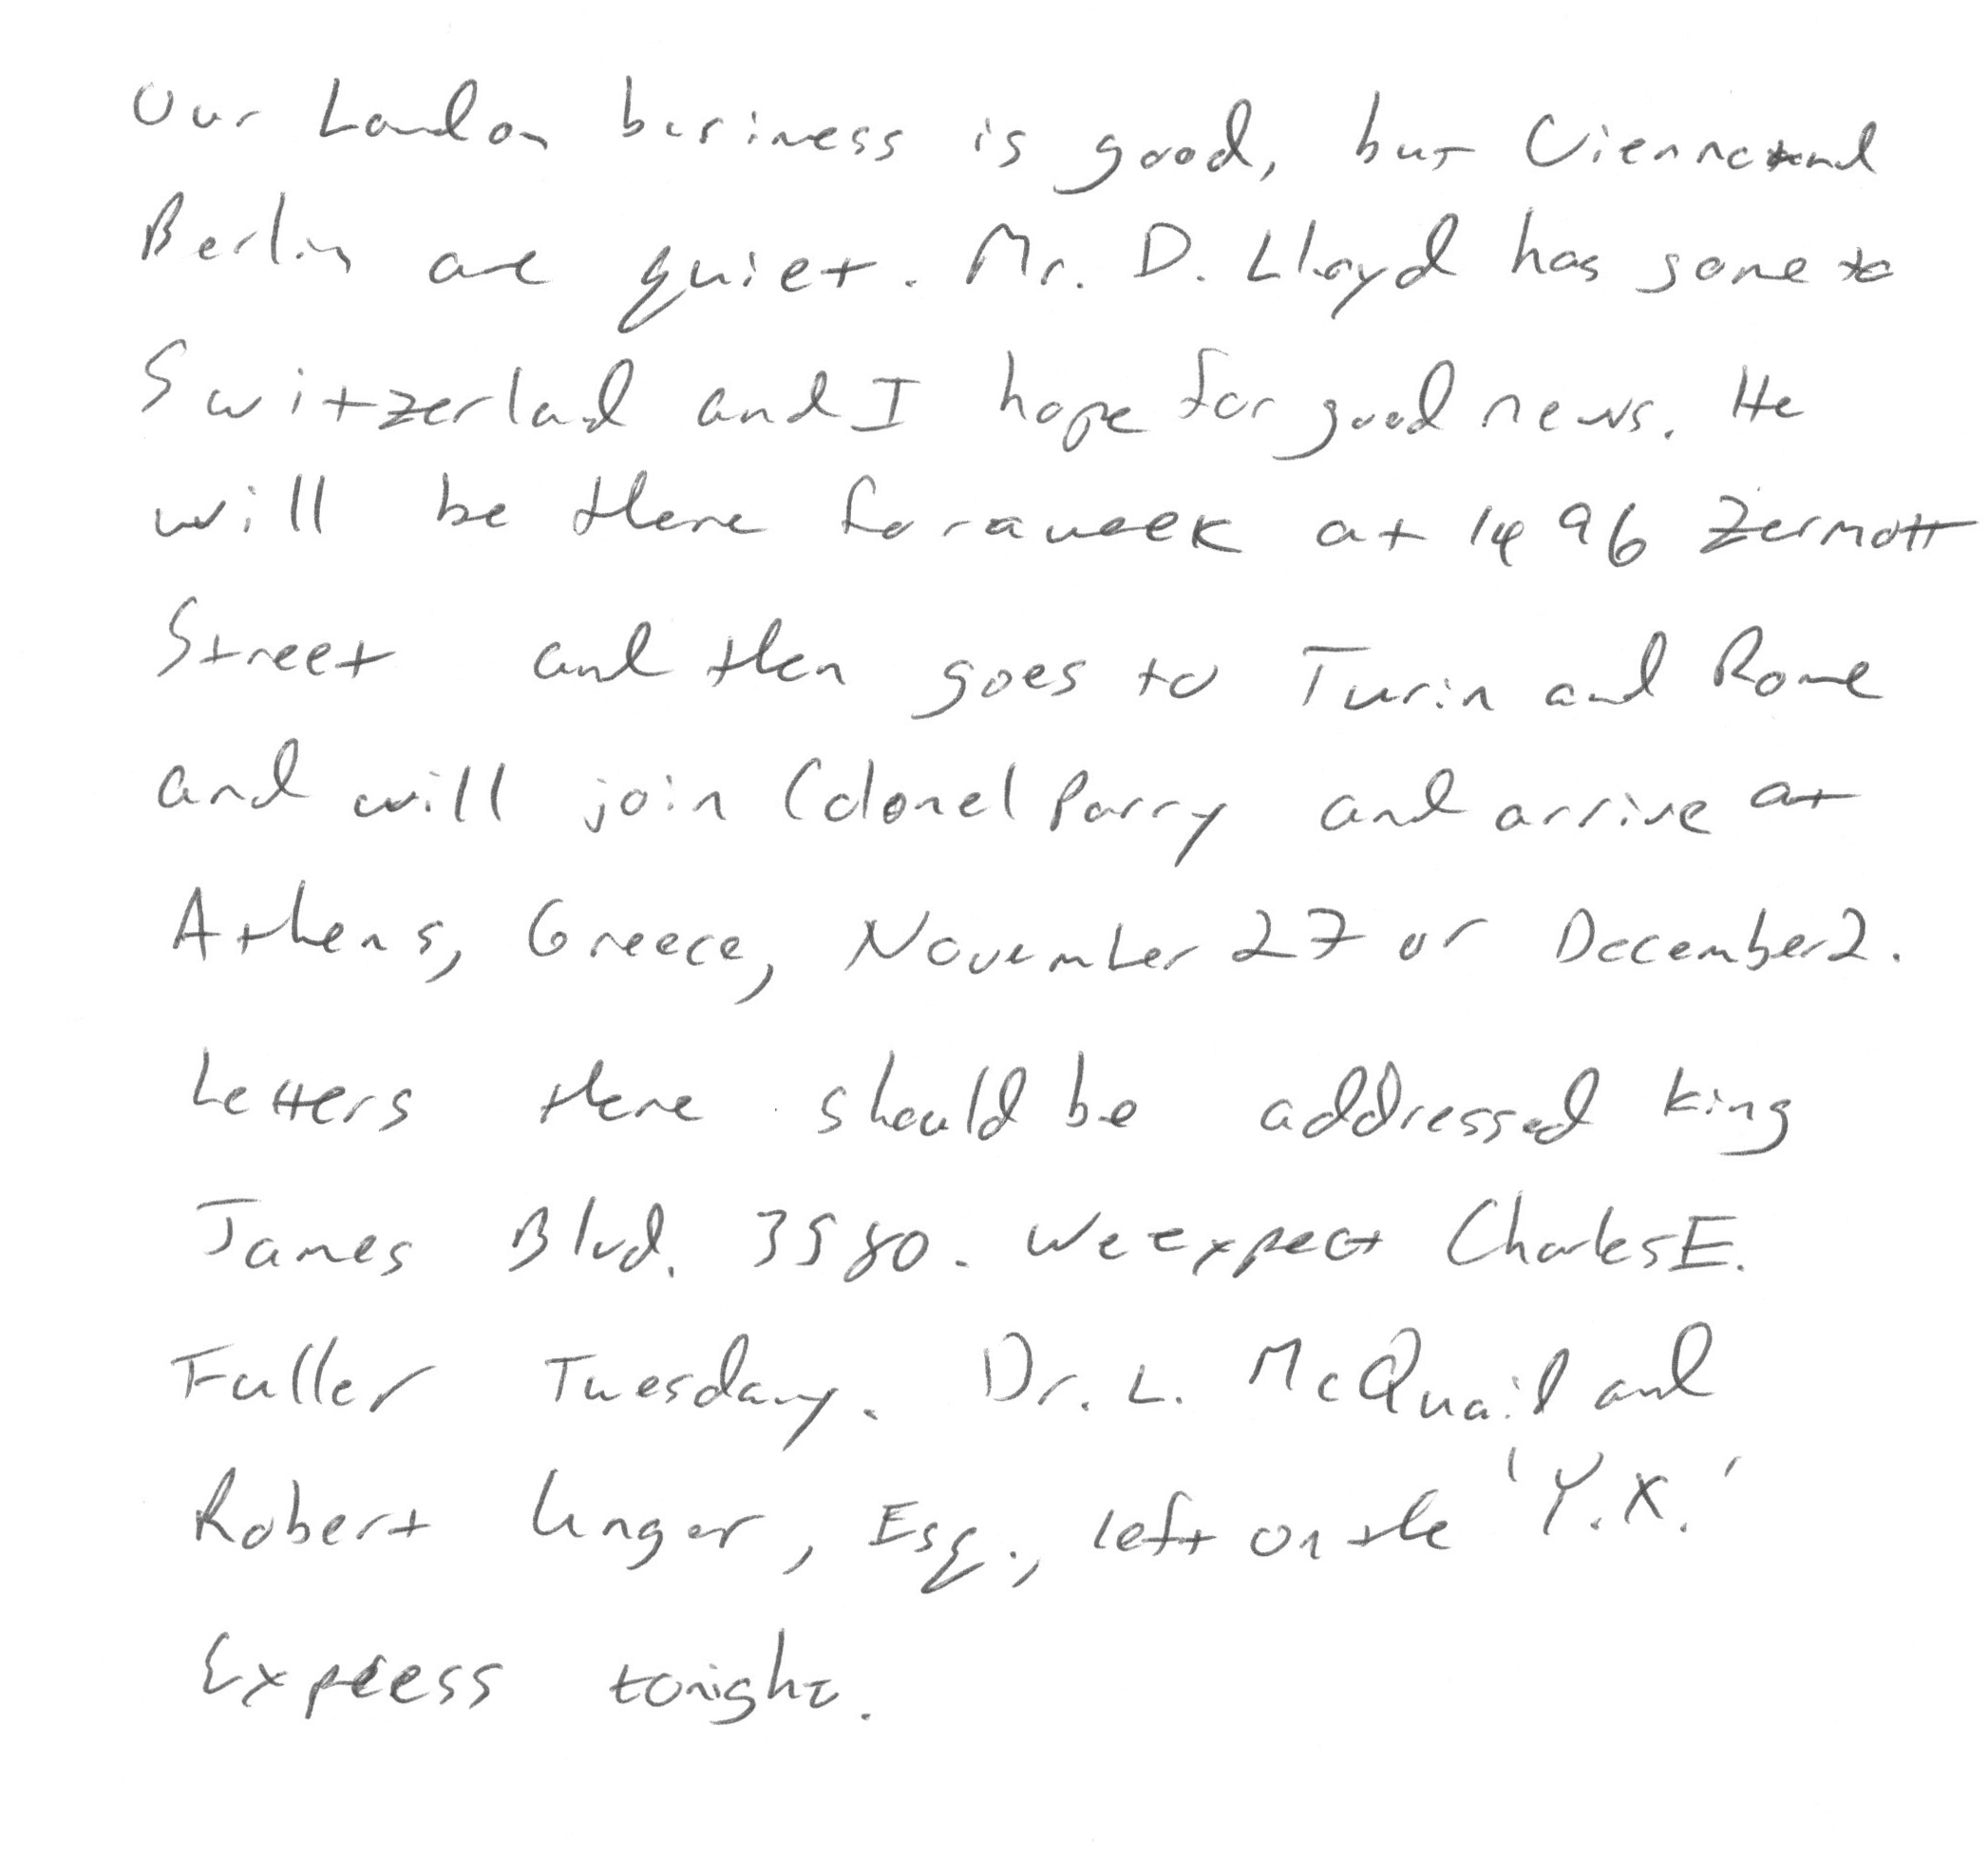 Our London business is good, but Vienna and
Berlin are quiet. Mr. D. Lloyd has gone to
Switzerlad and I hope for good news. He
will be there for a week at 1496 Zermott
Street and then goes to Turin and Rome
and will join Colonel Parry and arrive at
Athens, Greece, November 27 or December 2.
Letters there should be addressed King
James Blvd. 3580. We expect Charles E.
Fuller Tuesday. Dr. L. McQuaid and
Robert Unger, Esq., left on the 'Y.X.'
Express tonight.